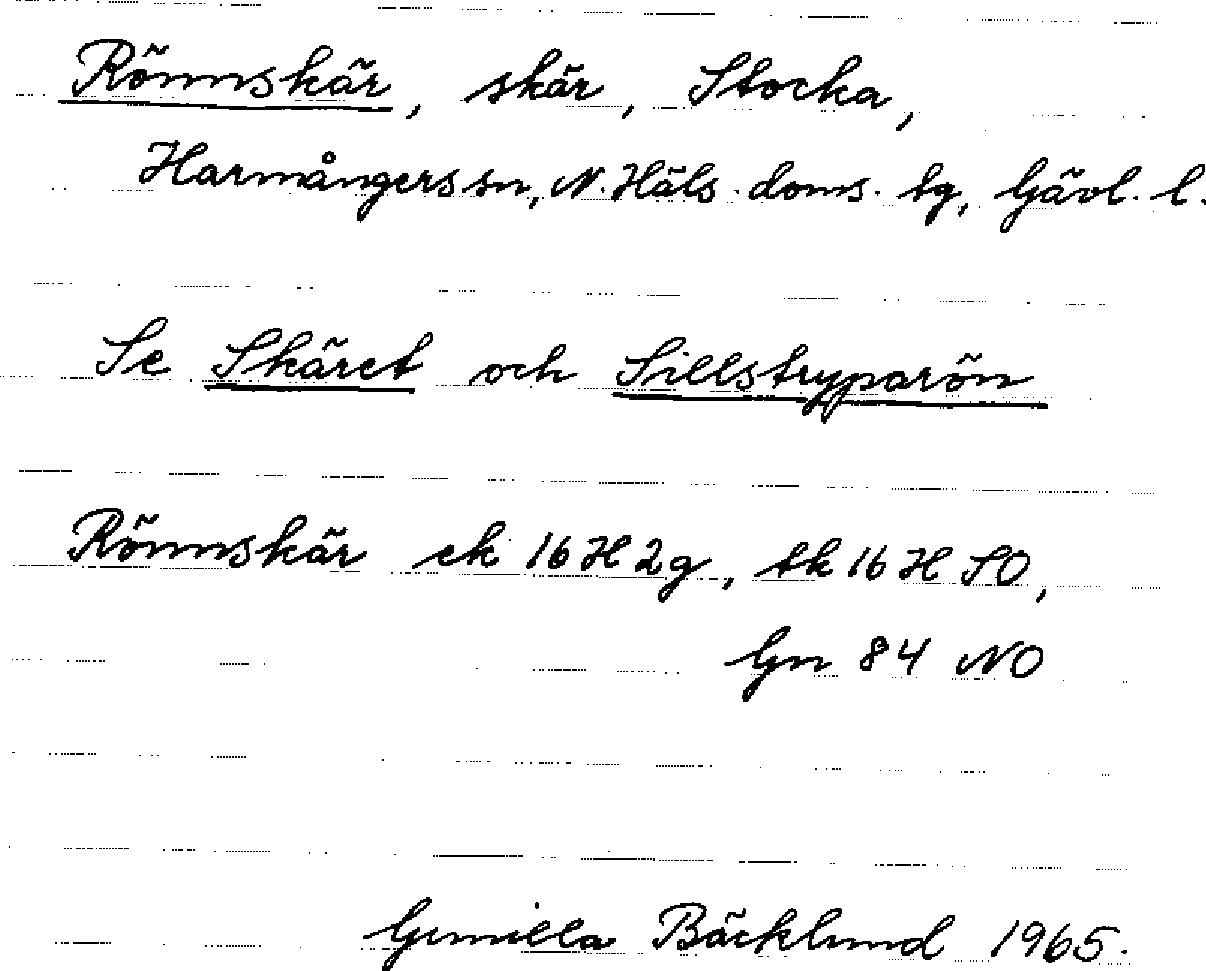 Rönnskär, skär, Stocka,
Harmångers sn, N. Häls. doms. tg, Gävl. l.
Se Skäret och Sillstryparön
Rönnskär ek 16 H 2g, tk 16 H SO,
Gn 84 NO
Gunilla Bäcklund 1965.